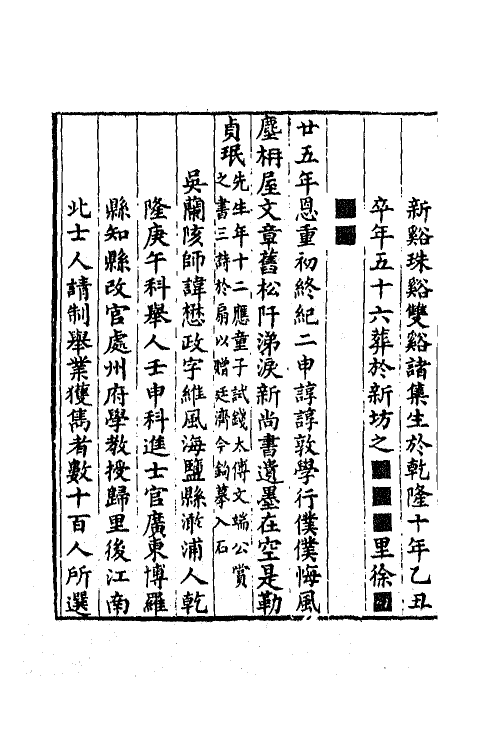 新谿珠谿雙谿諸集生於乾隆十年乙丑
卒年五十六葬於新坊之■■■里徐■
■■
廿五年恩重初終紀二申諄諄敦學行僕僕悔風
塵枏屋文章舊松阡涕淚新尚書遺墨在空是勒
貞珉先生年十二應童子試錢太傅文端公賞
之書三詩於扇以贈廷濟今鉤摹入石
吳蘭陔師諱懋政字維風海鹽縣澉浦人乾
隆庚午科舉人壬申科進士官廣東博羅
縣知縣改官處州府學教授歸里後江南
北士人請制舉業獲雋者數十百人所選